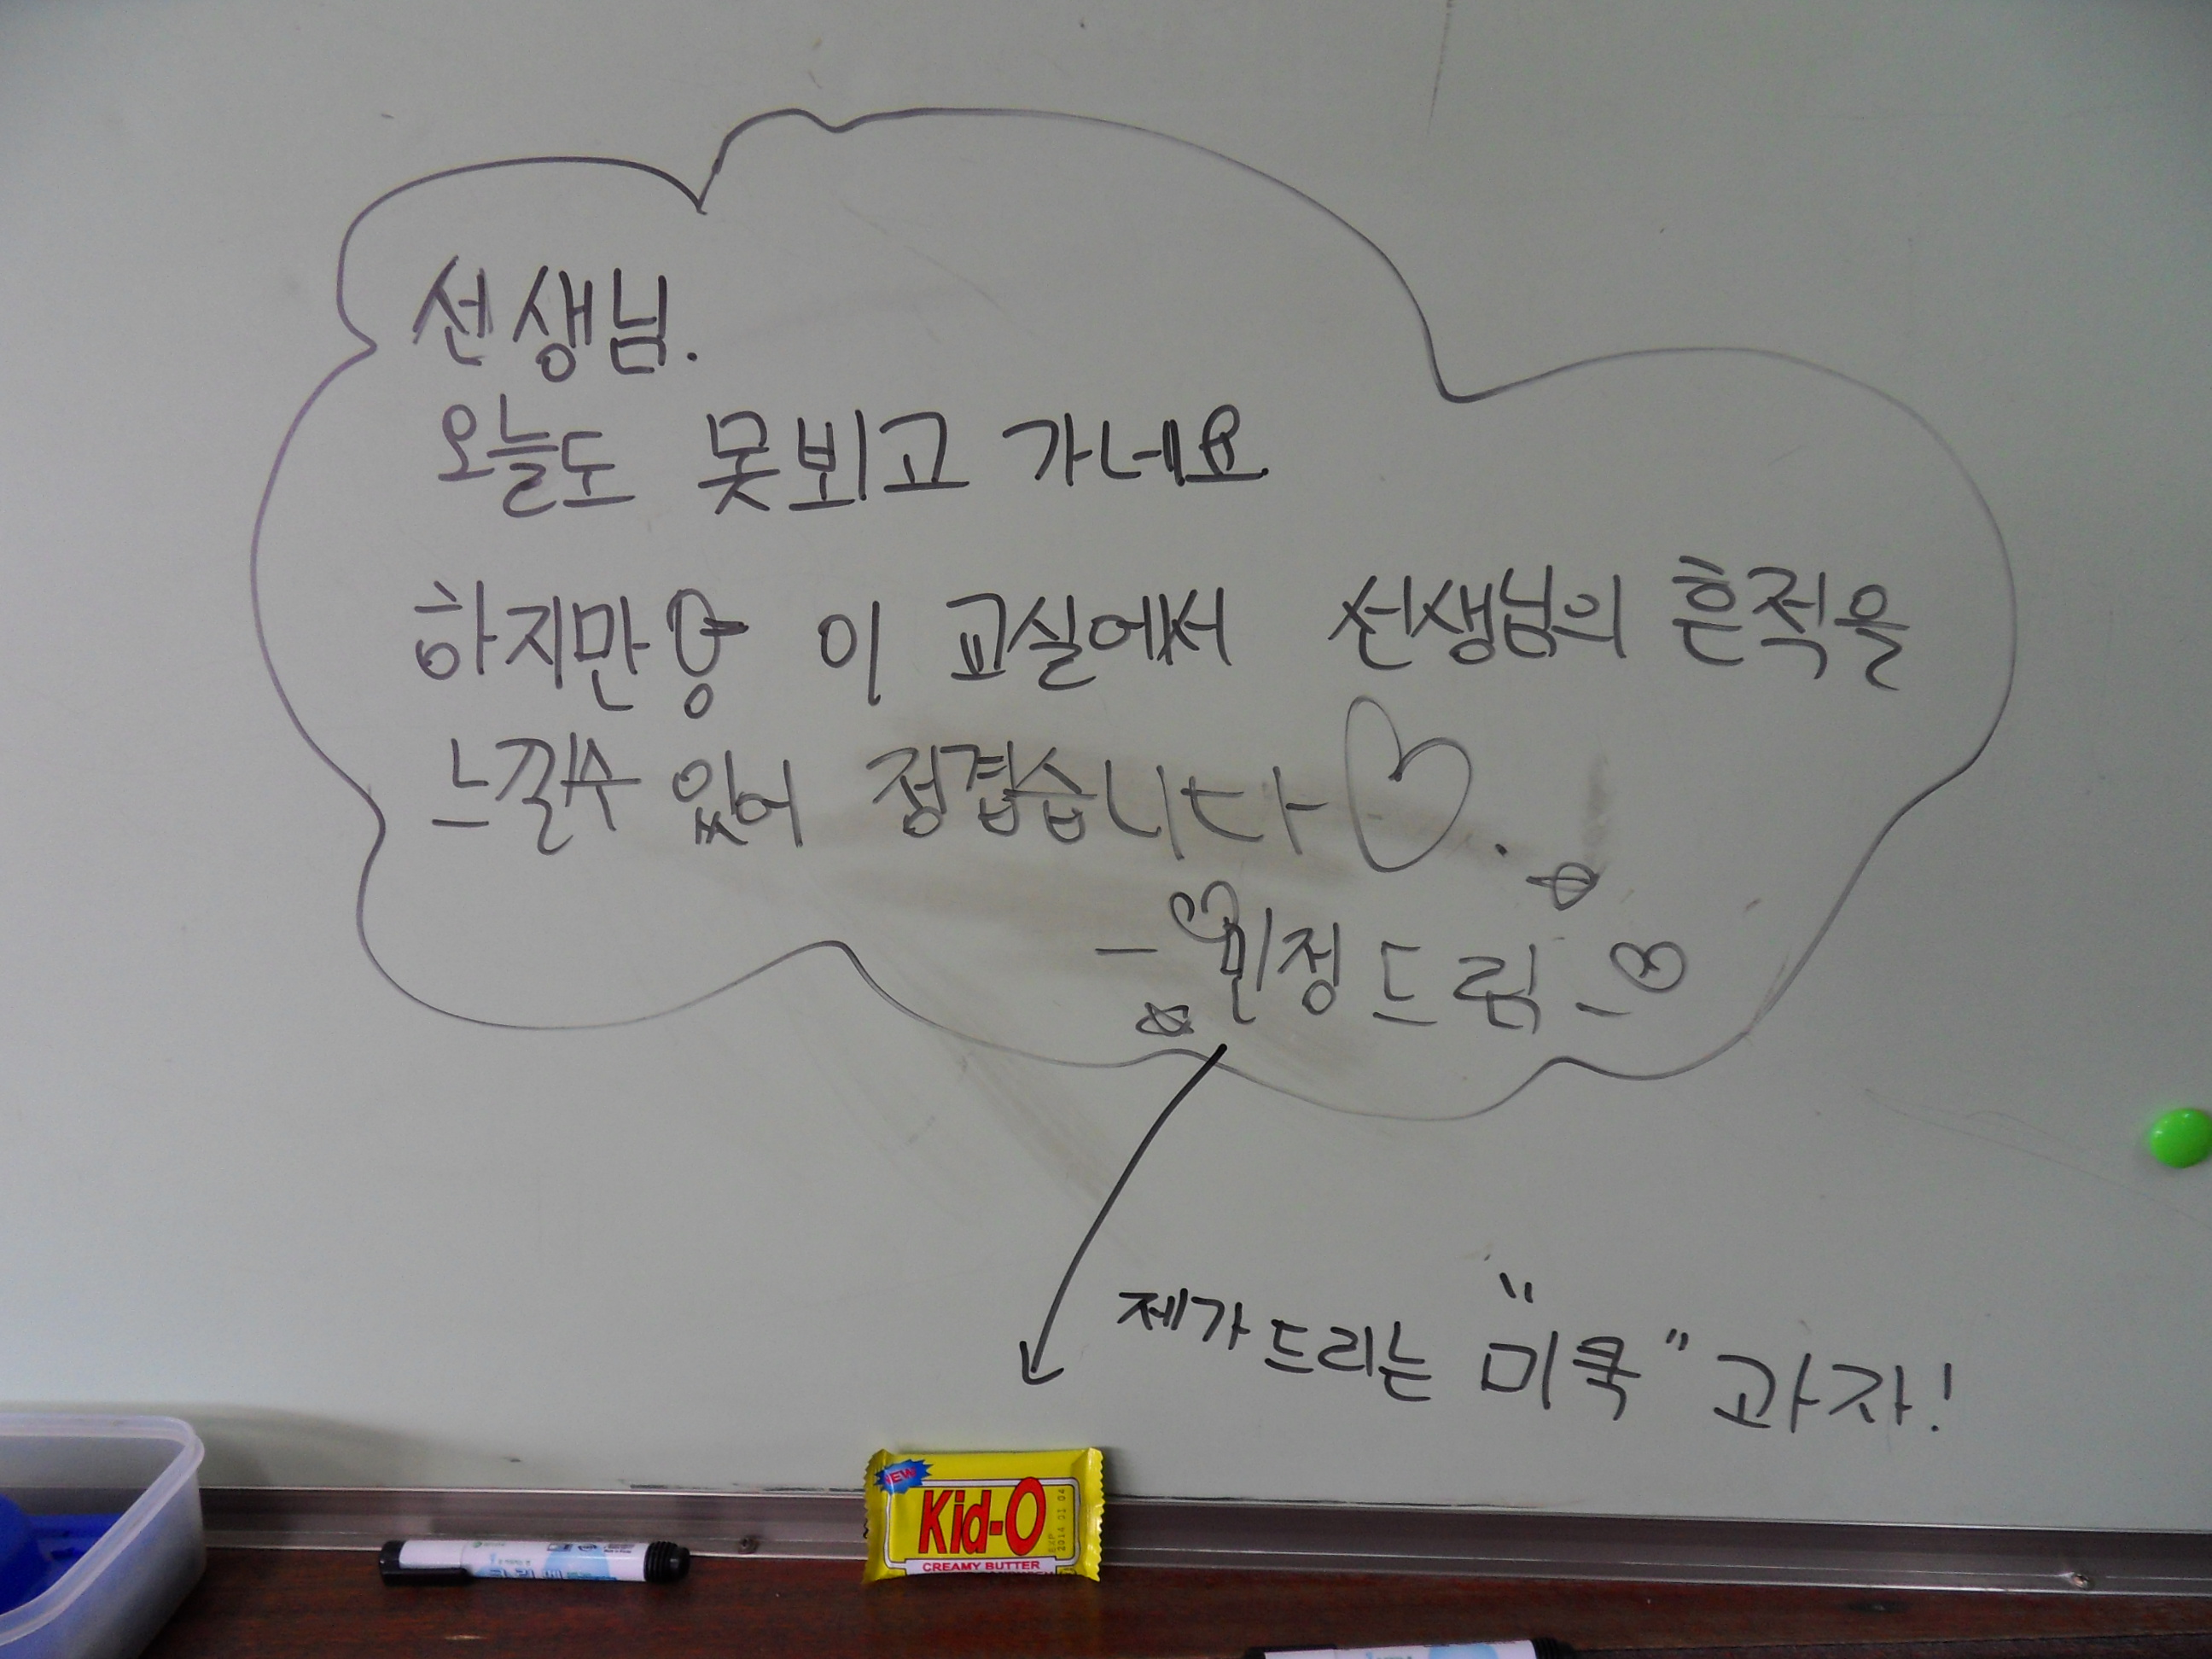 선생님.
오늘도 못뵈고 가네요
하지만용 이 교실에서 선생님의 흔적을
느낄수 있어 정겹습니다♡.
- 민정 드림 - ♡
제가 드리는 "미쿡" 과자!
NEW
Kid-O
CREAMY BUTTER
EXP 2014 01 04